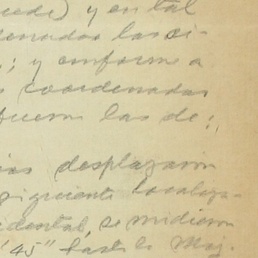 uede) y en tal
denadas las si-
; y conforme a
s coordenadas
fueron las de:
ias desplazaron
siguiente localiza-
idental, se midieron
45" hasta la Maj-